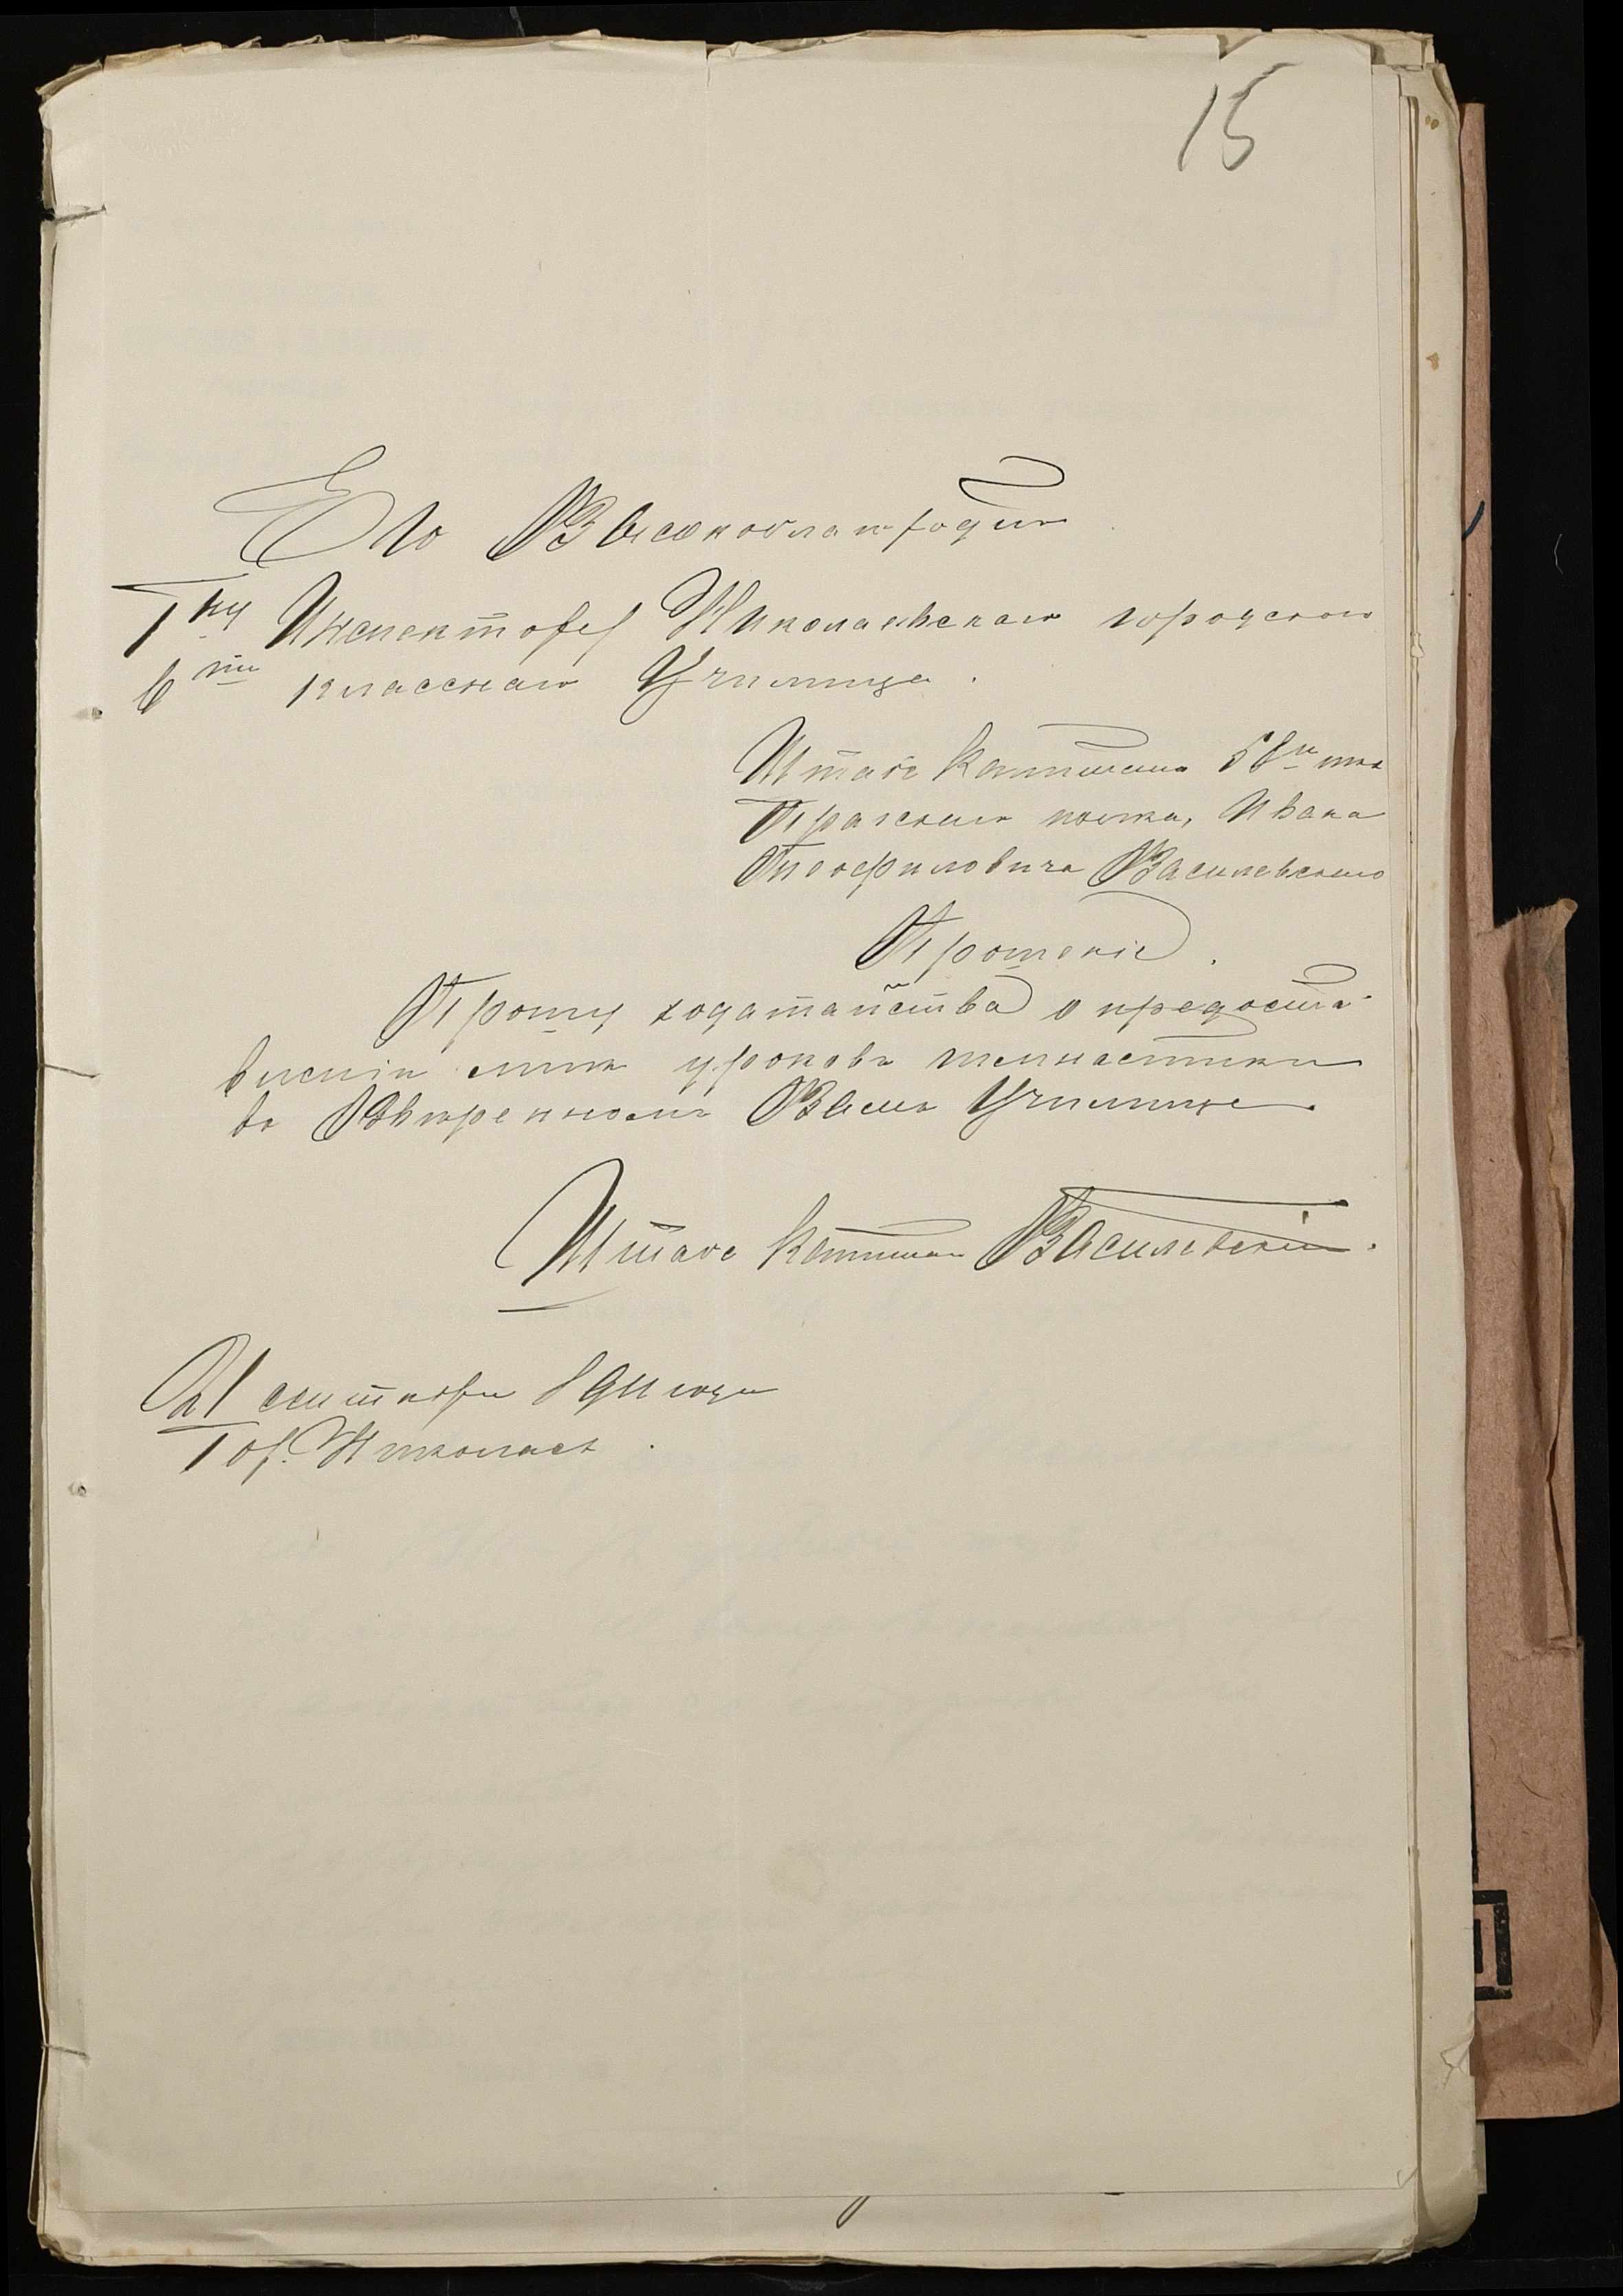 15
Его Высокоблагородію
Гну Инспектору Николаевскаго городского
6ти класснаго Училища.
Штабс Капитана 58го пѣх
Пражскаго полка, Ивана
Теофиловича Василевскаго
Прошеніе.
Прошу ходатайства о предоста-
вленіи мнѣ уроковъ гимнастики
въ Ввѣренномъ Вамъ Училище.
Штабс Капитан Василевскій.
21 сентября 1911 года
Гор. Николаев.